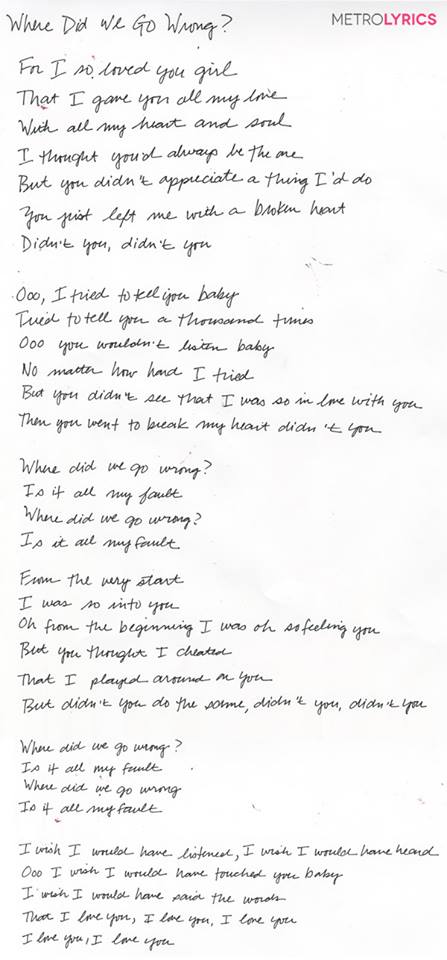 Where Did We Go Wrong?
METROLYRICS
For I so loved you girl
That I gave you all my love
With all my heart and soul
I thought you'd always be the one
But you didn't appreciate a thing I'd do
You just left me with a broken heart
Didn't you, didn't you
Ooo, I tried to tell you baby
Tried to tell you a thousand times
Ooo you wouldn't listen baby
No matter how hard I tried
But you didn't see that I was so in love with you
Then you went to break my heart didn't you
Where did we go wrong?
Is it all my fault
Where did we go wrong?
Is it all my fault
From the very start
I was so into you
Oh from the beginning I was oh so feeling you
But you thought I cheated
That I played around on you
But didn't you do the same, didn't you, didn't you
Where did we go wrong?
Is it all my fault
Where did we go wrong
Is it all my fault
I wish I would have listened, I wish I would have heard
Ooo I wish I would have touched you baby
I wish I would have said the words
That I love you, I love you, I love you
I love you, I love you